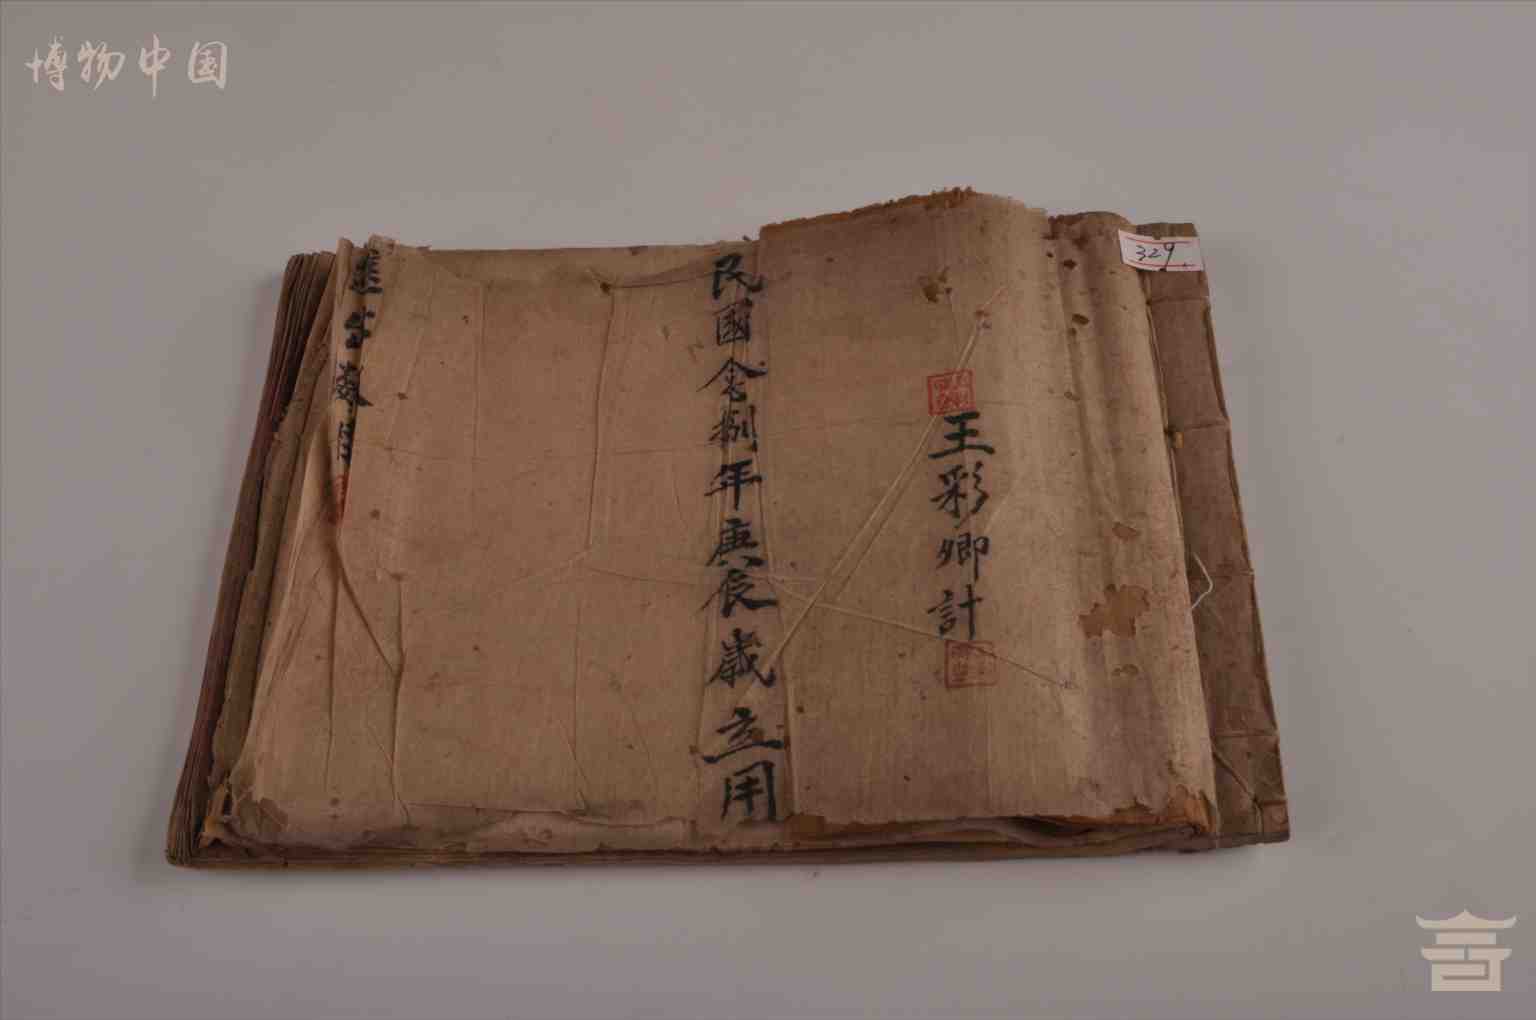 博物中国
329
王彩卿計
民國念捌年庚辰歲立用